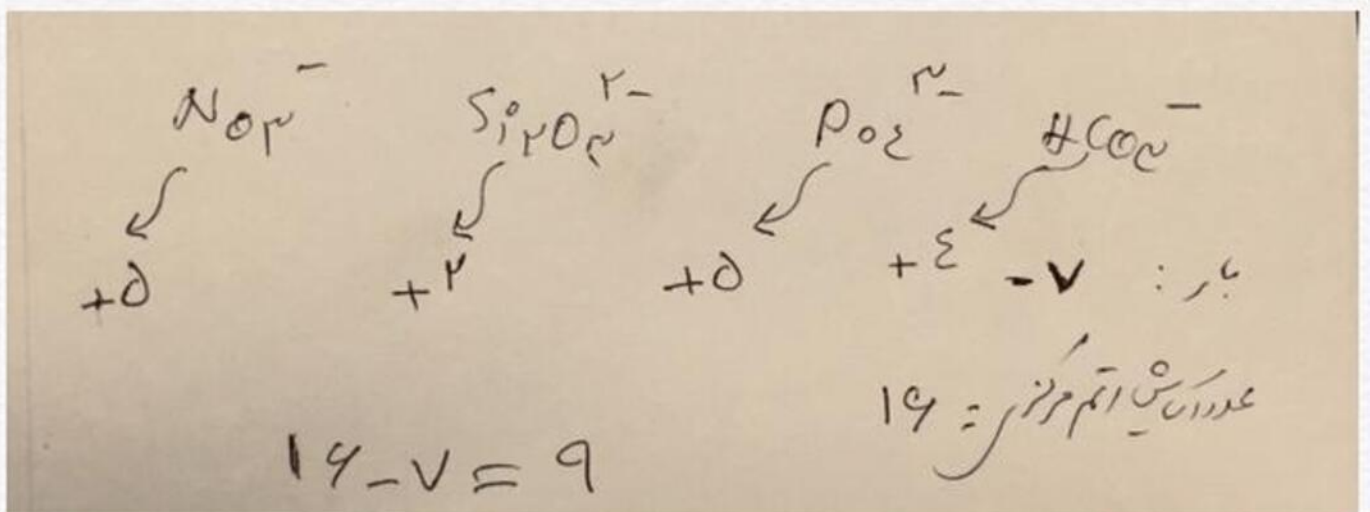 NO۳⁻ Si۲O۳²⁻ PO٤³⁻ HCO۳⁻
+۵ +۲ +۵ +٤
بار : -۷
عدد اکسایش اتم مرکزی = ۱۶
۱۶-۷=۹